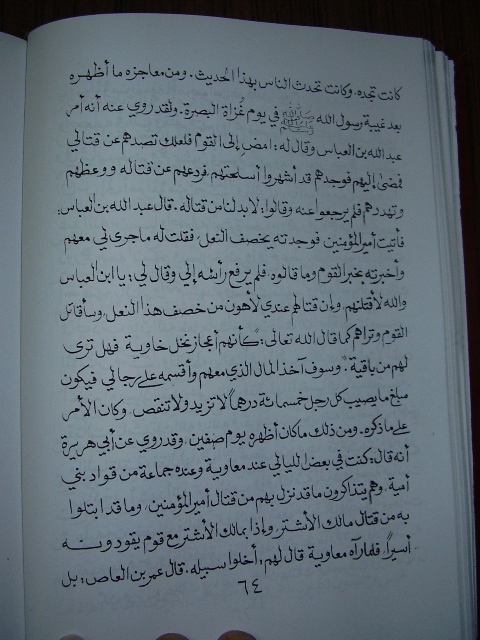 كانت تجده. وكانت تحدث الناس بهذا الحديث. ومن معاجزه ما أظهره
بعد غيبة رسول الله ﷺ في يوم غُزاة البصرة. ولقد روي عنه أنه أمر
عبد الله بن العباس وقال له: امضِ إلى القوم فلعلك تصدهم عن قتالي
فمضى إليهم فوجدهم قد أشهروا أسلحتهم، فردعهم عن قتاله ووعظهم
وتهددهم فلم يرجعوا عنه وقالوا: لا بد لنا من قتاله. قال عبد الله بن العباس:
فأتيت أمير المؤمنين فوجدته يخصف النعل، فقلت له ما جرى لي معهم
وأخبرته بخبر القوم وما قالوه. فلم يرفع رأسه إلي وقال لي: يا ابن العباس
والله لأقتلنهم، وإن قتالهم عندي لأهون من خصف هذا النعل، وسأقاتل
القوم وتراهم كما قال الله تعالى: كأنهم أعجاز نخل خاوية فهل ترى
لهم من باقية. وسوف آخذ المال الذي معهم وأقسمه على رجالي فيكون
مبلغ ما يصيب كل رجل خمسمائة درهماً لا تزيد ولا تنقص. وكان الأمر
على ما ذكره. ومن ذلك ما كان أظهره يوم صفين. وقد روي عن أبي هريرة
أنه قال: كنت في بعض الليالي عند معاوية وعنده جماعة من قواد بني
أمية. وهم يتذاكرون ما قد نزل بهم من قتال أمير المؤمنين. وما قد ابتلوا
به من قتال مالك الأشتر. وإذا بمالك الأشتر مع قوم يقودونه
أسيراً. فلما رآه معاوية قال لهم: أخلوا سبيله. قال عمر بن العاص: بل
٦٤